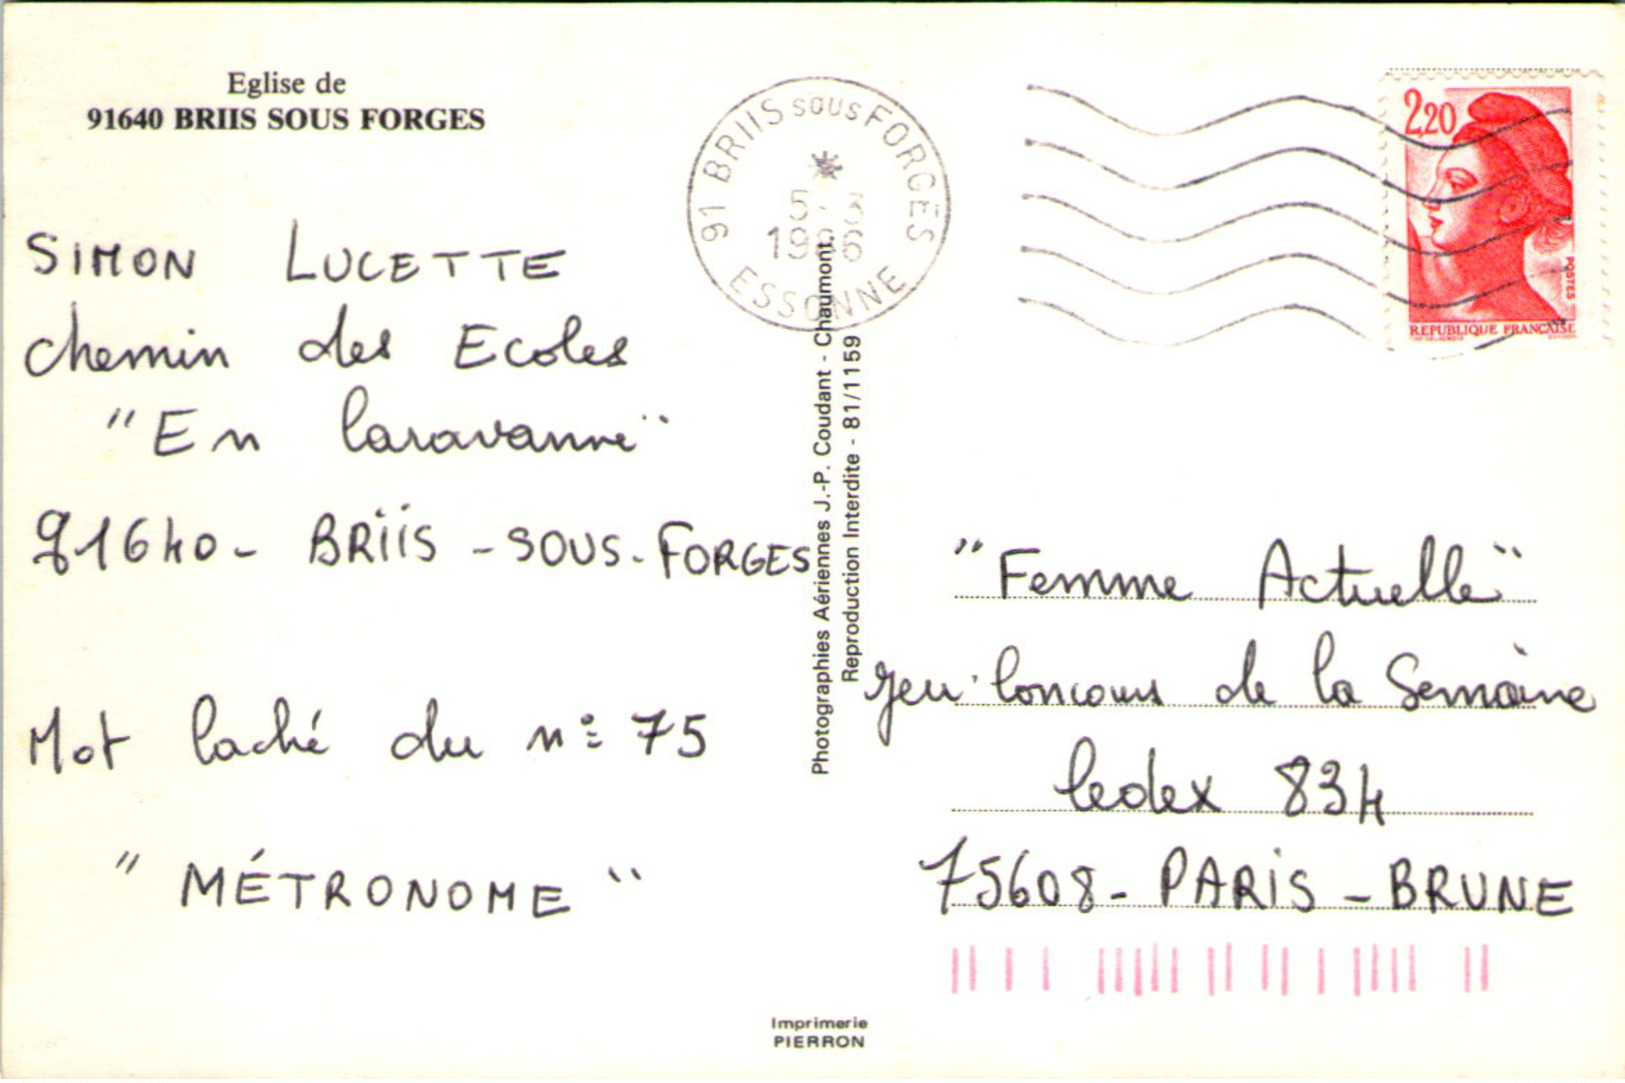 Eglise de
91640 BRIIS SOUS FORGES
91 BRIIS SOUS FORGES
5-3
1986
ESSONNE
2,20
POSTES
REPUBLIQUE FRANÇAISE
SIMON LUCETTE
chemin des Ecoles
"En Caravanne"
91640 - BRIIS - SOUS - FORGES
Mot caché du n° 75
"MÉTRONOME"
Photographies Aériennes J.-P. Coudant - Chaumont.
Reproduction Interdite - 81/1159
"Femme Actuelle"
Jeu Concours de la Semaine
Cedex 834
75608 - PARIS - BRUNE
Imprimerie
PIERRON